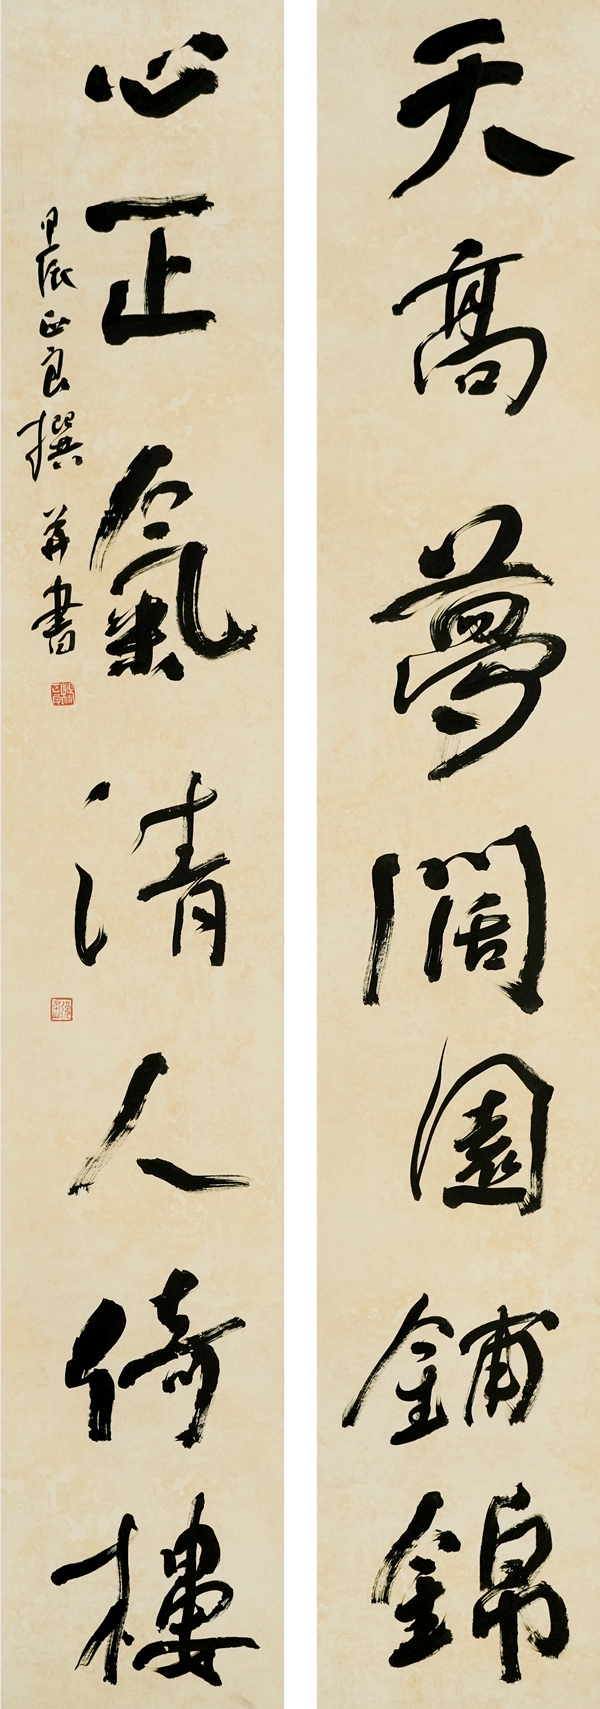 天高夢闊園鋪錦
心正氣清人倚樓
甲辰正良撰并書